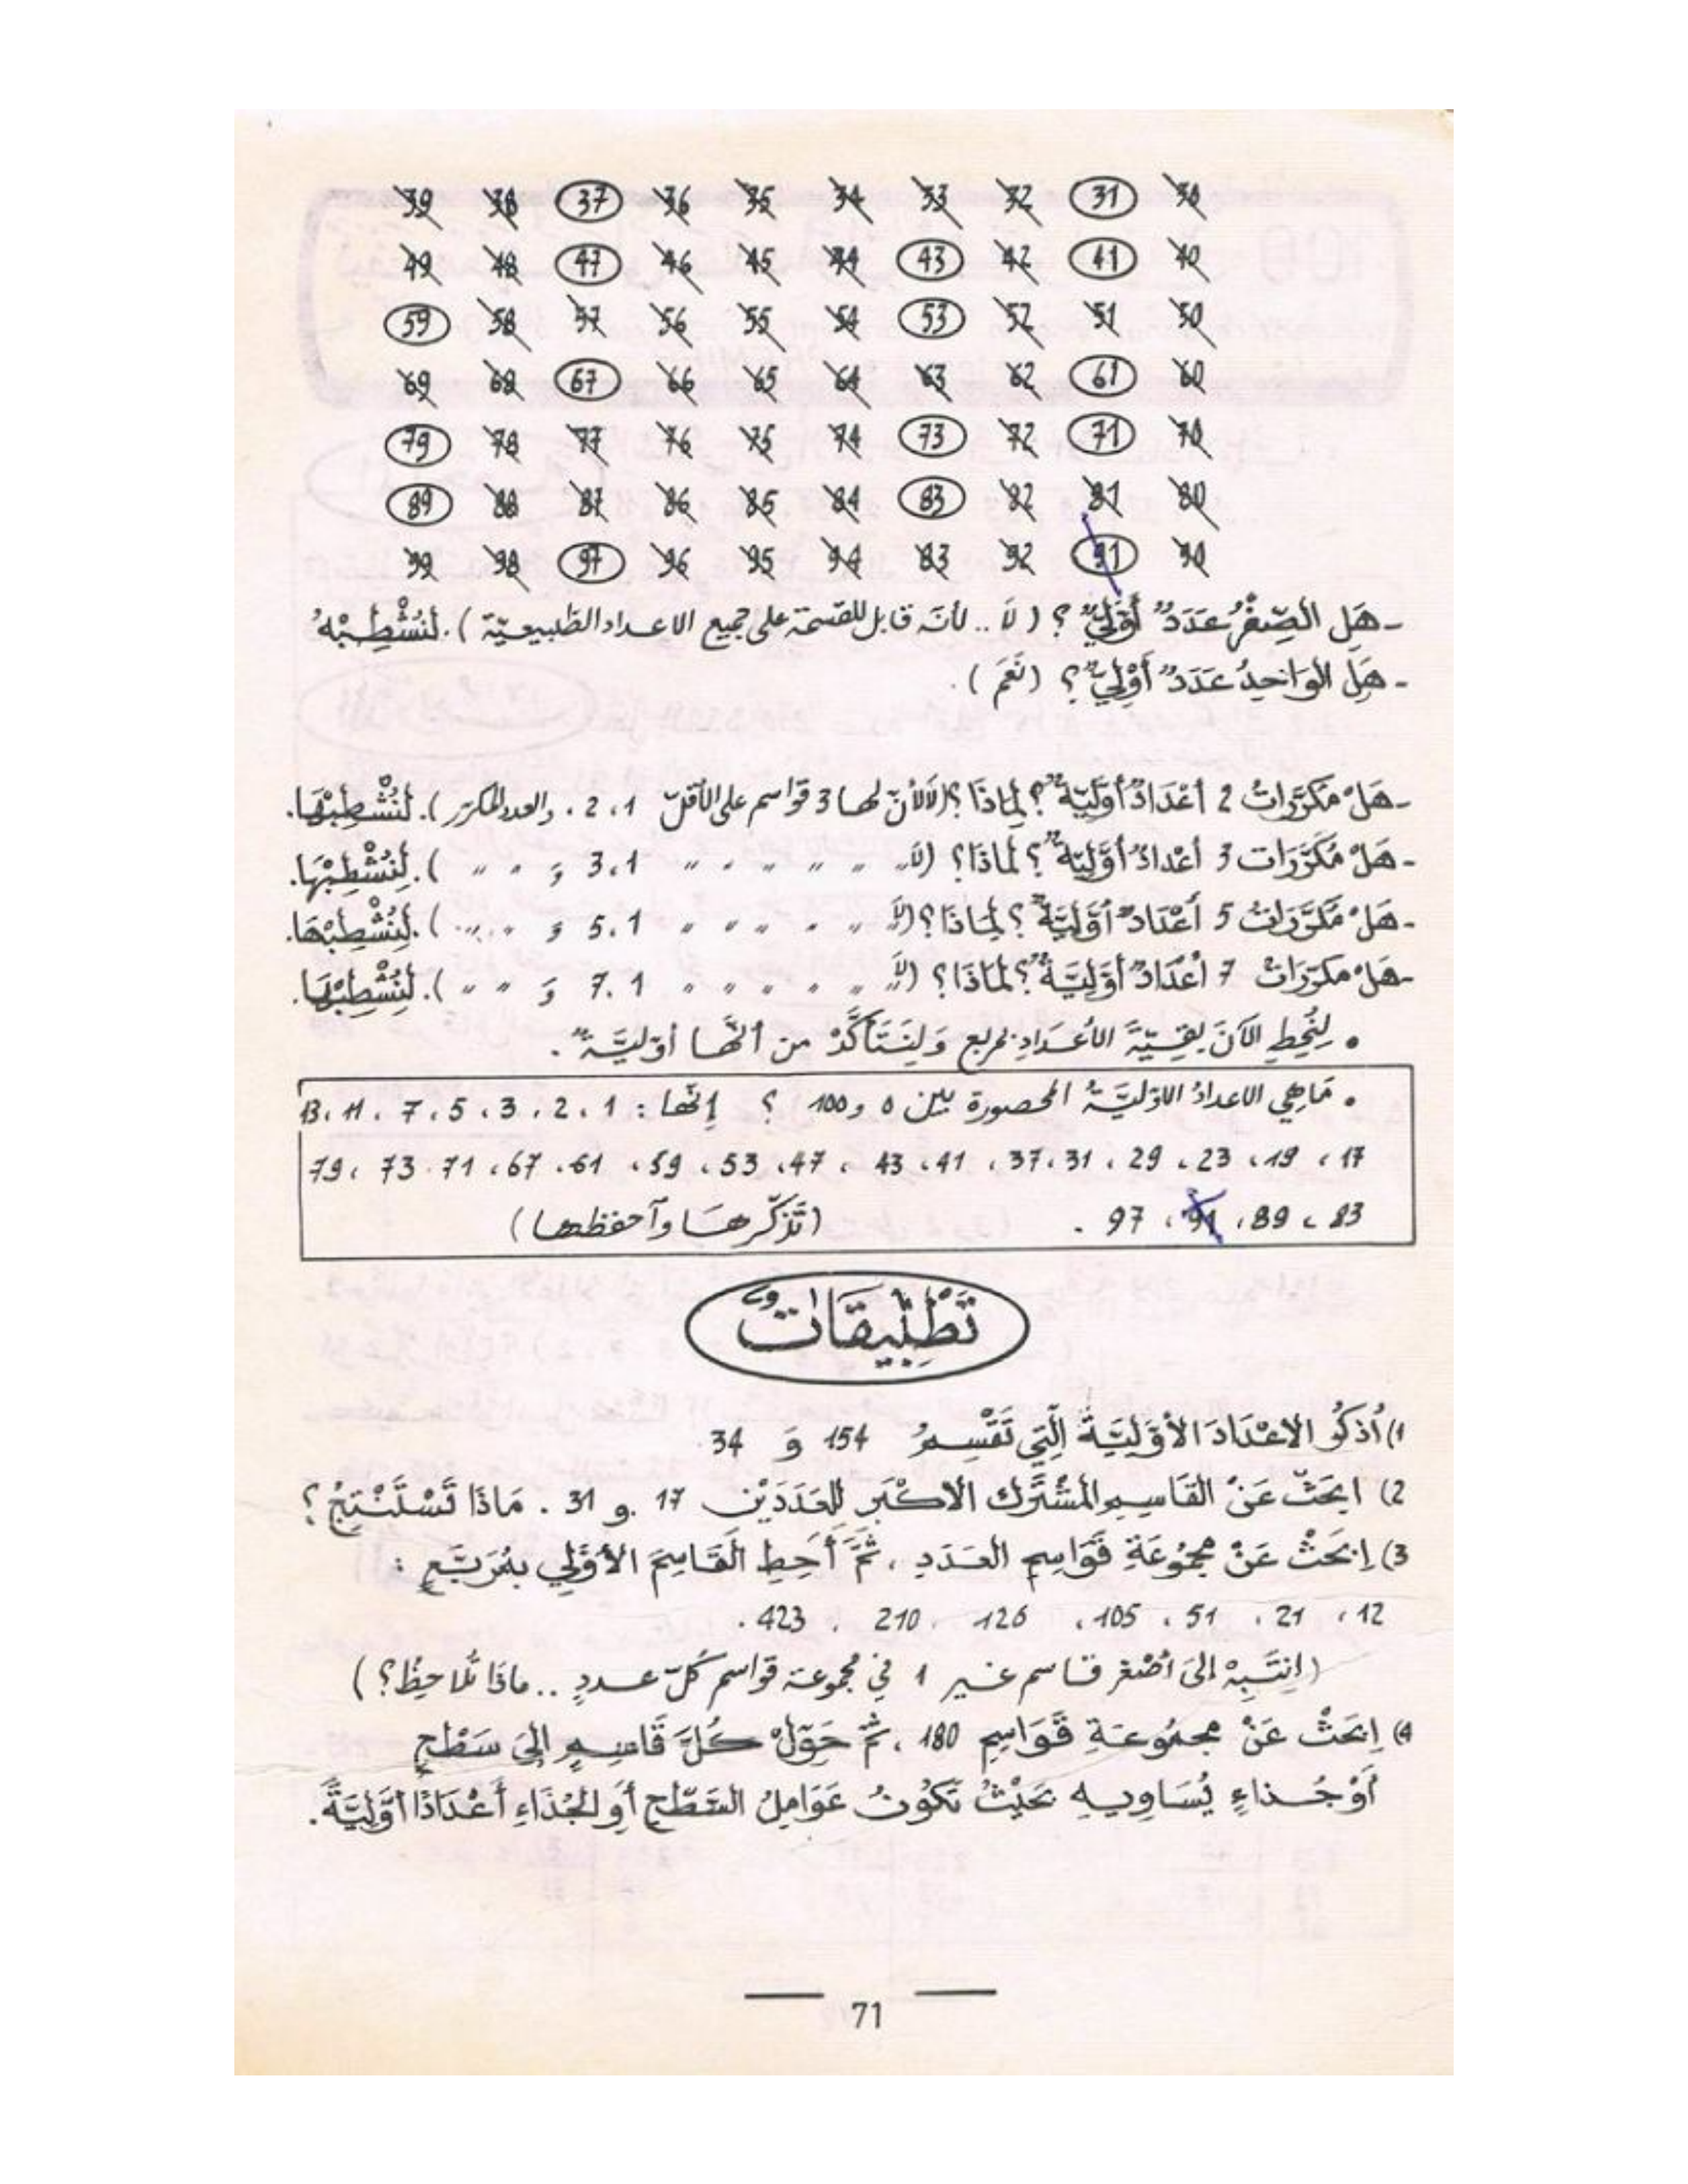 30 31 32 33 34 35 36 37 38 39
40 41 42 43 44 45 46 47 48 49
50 51 52 53 54 55 56 57 58 59
60 61 62 63 64 65 66 67 68 69
70 71 72 73 74 75 76 77 78 79
80 81 82 83 84 85 86 87 88 89
90 91 92 83 94 95 96 97 98 99
- هَلِ الصِّفْرُ عَدَدٌ أَوَّلِيٌّ ؟ ( لَا .. لأنّه قابل للقسمة على جميع الاعداد الطّبيعيّة ) . لِنُشْطِبْهُ
- هَلِ الوَاحِدُ عَدَدٌ أَوَّلِيٌّ ؟ ( نَعَمْ ) .
- هَلْ مُكَرَّرَاتُ 2 أَعْدَادٌ أَوَّلِيَّةٌ ؟ لِمَاذَا ؟ ( لَا لأنّ لها 3 قواسم على الأقلّ 1 ، 2 . والعدد المكرّر ) . لِنُشْطِبْهَا .
- هَلْ مُكَرَّرَات 3 أَعْدَادٌ أَوَّلِيَّةٌ ؟ لِمَاذَا ؟ ( لَا " " " " " " 1 ، 3 وَ " " " ) . لِنُشْطِبْهَا .
- هَلْ مُكَرَّرَاتُ 5 أَعْدَادٌ أَوَّلِيَّةٌ ؟ لِمَاذَا ؟ ( لَا " " " " " " 1 . 5 وَ " " " ) . لِنُشْطِبْهَا .
- هَلْ مُكَرَّرَاتُ 7 أَعْدَادٌ أَوَّلِيَّةٌ ؟ لِمَاذَا ؟ ( لَا " " " " " " 1 . 7 وَ " " " ) . لِنُشْطِبْهَا .
• لِنُحِطِ الآنَ بَقِيَّةَ الأَعْدَادِ بمربع وَلِنَتَأَكَّدْ من أنّها أوّليَّة .
• مَا هِي الاعدادُ الاوّليَّةُ المحصورة بين 0 و 100 ؟ إنّها : 1 ، 2 ، 3 ، 5 ، 7 ، 11 ، 13
17 ، 19 ، 23 ، 29 ، 31 ، 37 ، 41 ، 43 ، 47 ، 53 ، 59 ، 61 ، 67 ، 71 . 73 ، 79
83 ، 89 ، 91 ، 97 . ( تَذَكَّرها وآحفظها )
تَطْبِيقَاتٌ
1) أُذْكُرِ الاعْدَادَ الأوَّلِيَّةَ الَّتِي تَقْسِمُ 154 وَ 34
2) ابحَثْ عَنْ القَاسِمِ المُشْتَرَك الأكْبَرِ لِلْعَدَدَيْنِ 17 و 31 . مَاذَا تَسْتَنْتِجُ ؟
3) اِبْحَثْ عَنْ مجمُوعَةِ قَوَاسِمِ العَدَدِ ، ثُمَّ أَحِطِ القَاسِمَ الأوَّلِي بِمُرَبَّعٍ :
12 ، 21 ، 51 ، 105 ، 126 . 210 ، 423 .
( انتَبِهْ إلى أصْغر قاسم غير 1 في مجموعة قواسم كلّ عددٍ .. ماذا تُلاحِظُ ؟ )
4) اِبحَثْ عَنْ مجمُوعَةِ قَوَاسِمِ 180 ، ثُمَّ حَوِّلْ كُلَّ قَاسِمٍ إلى سَطْحٍ
أَوْ جُذاءٍ يُسَاوِيهِ بحَيْثُ تَكُونُ عَوَامِلُ السَّطْحِ أوِ الجُذَاءِ أعْدَادًا أوَّلِيَّةً .
71